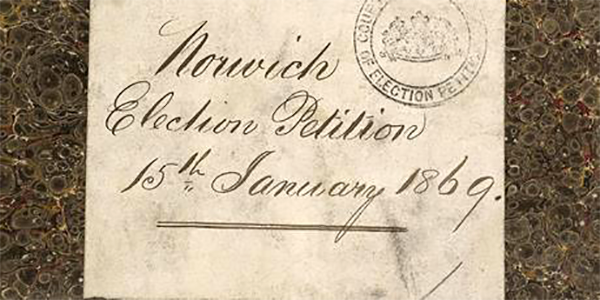 Norwich
Election Petition
15th January 1869.
OF ELECTION PETIT